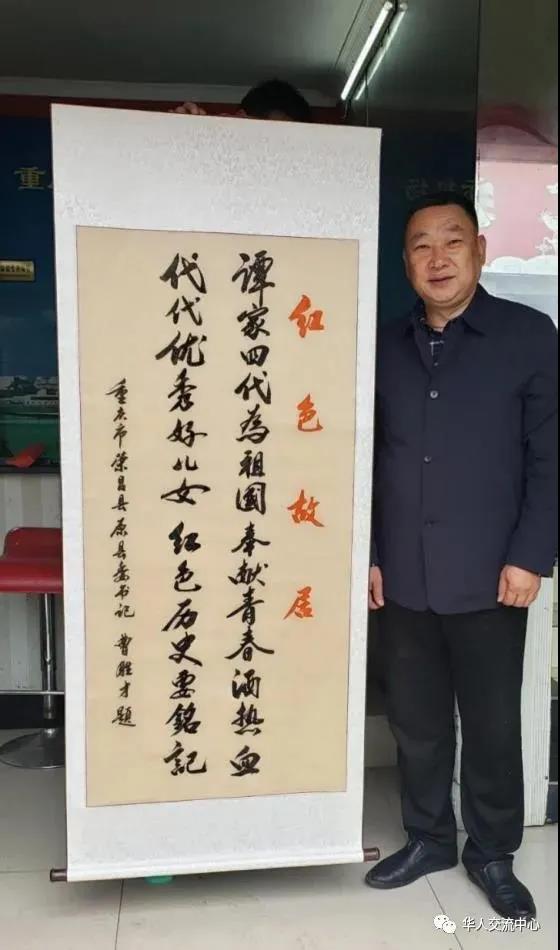 红色故居
谭家四代為祖國奉献青春洒热血
代代优秀好儿女 红色历史要銘記
重庆市荣昌县原县委书记 曹胜才题
重
华人交流中心